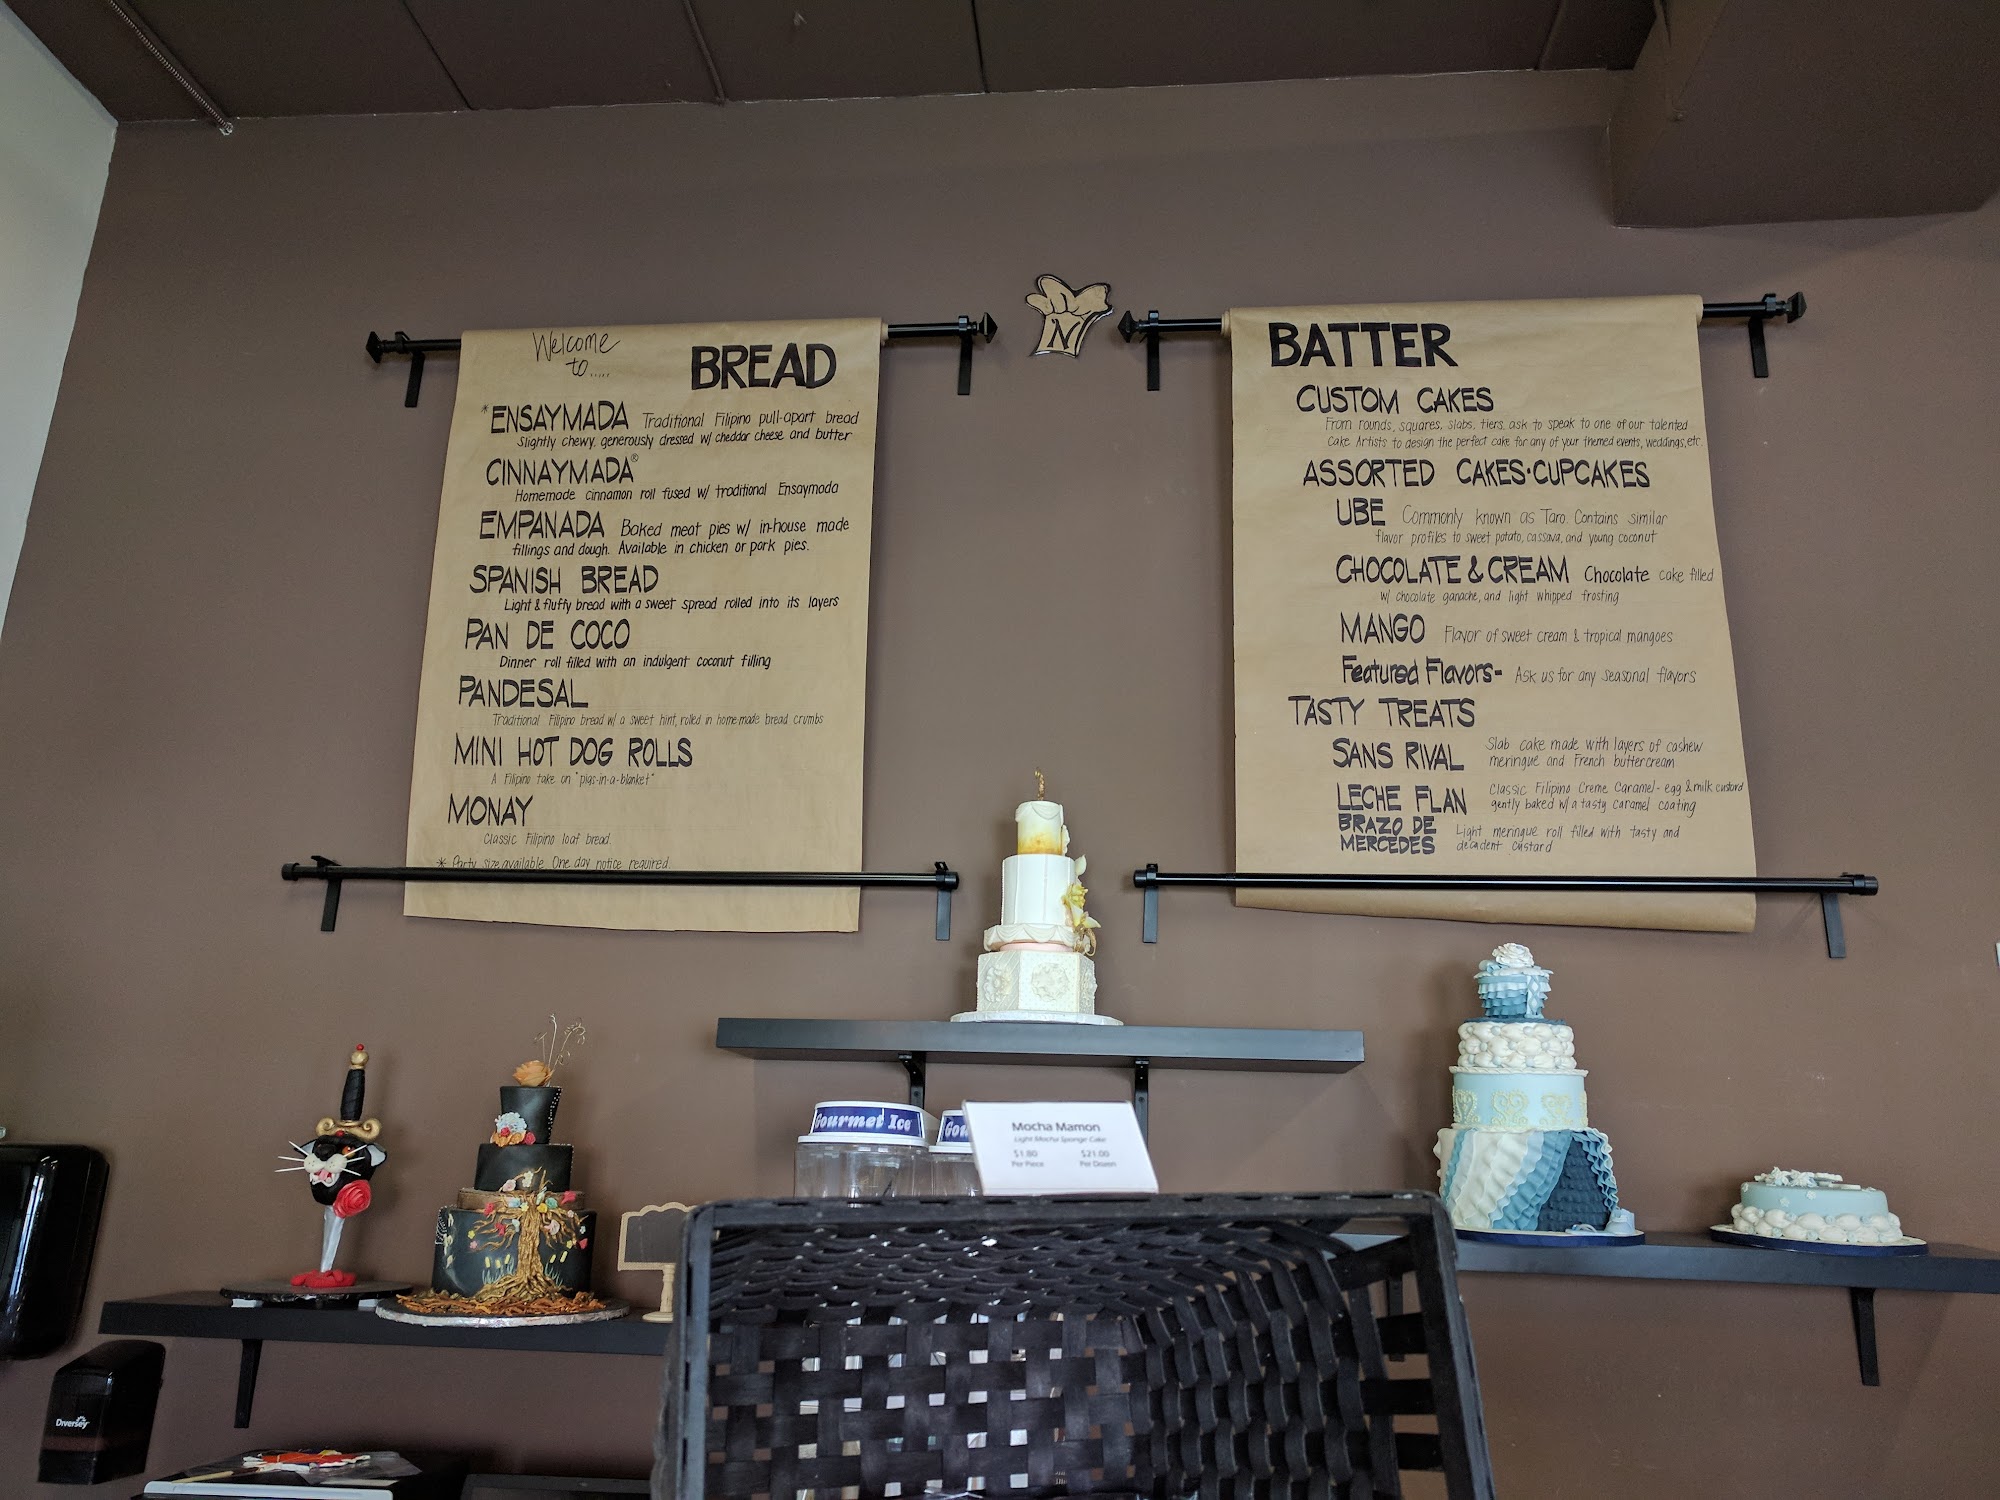 Welcome
to.....
BREAD
*ENSAYMADA Traditional Filipino pull-apart bread
slightly chewy, generously dressed w/ cheddar cheese and butter
CINNAYMADA®
Homemade cinnamon roll fused w/ traditional Ensaymada
EMPANADA Baked meat pies w/ in-house made
fillings and dough. Available in chicken or pork pies.
SPANISH BREAD
Light & fluffy bread with a sweet spread rolled into its layers
PAN DE COCO
Dinner roll filled with an indulgent coconut filling
PANDESAL
Traditional Filipino bread w/ a sweet hint, rolled in home-made bread crumbs
MINI HOT DOG ROLLS
A Filipino take on "pigs-in-a-blanket"
MONAY
Classic Filipino loaf bread.
* Party size available. One day notice required.
N
BATTER
CUSTOM CAKES
From rounds, squares, slabs, tiers, ask to speak to one of our talented
Cake Artists to design the perfect cake for any of your themed events, weddings, etc.
ASSORTED CAKES·CUPCAKES
UBE Commonly known as Taro. Contains similar
flavor profiles to sweet potato, cassava, and young coconut
CHOCOLATE & CREAM Chocolate cake filled
w/ chocolate ganache, and light whipped frosting
MANGO Flavor of sweet cream & tropical mangoes
Featured Flavors- Ask us for any seasonal flavors
TASTY TREATS
SANS RIVAL Slab cake made with layers of cashew
meringue and French buttercream
LECHE FLAN Classic Filipino Creme Caramel- egg & milk custard
gently baked w/ a tasty caramel coating
BRAZO DE
MERCEDES Light meringue roll filled with tasty and
decadent custard
Gourmet Ice
Gou
Mocha Mamon
Light Mocha Sponge Cake
$1.80 $21.00
Per Piece Per Dozen
Diversey